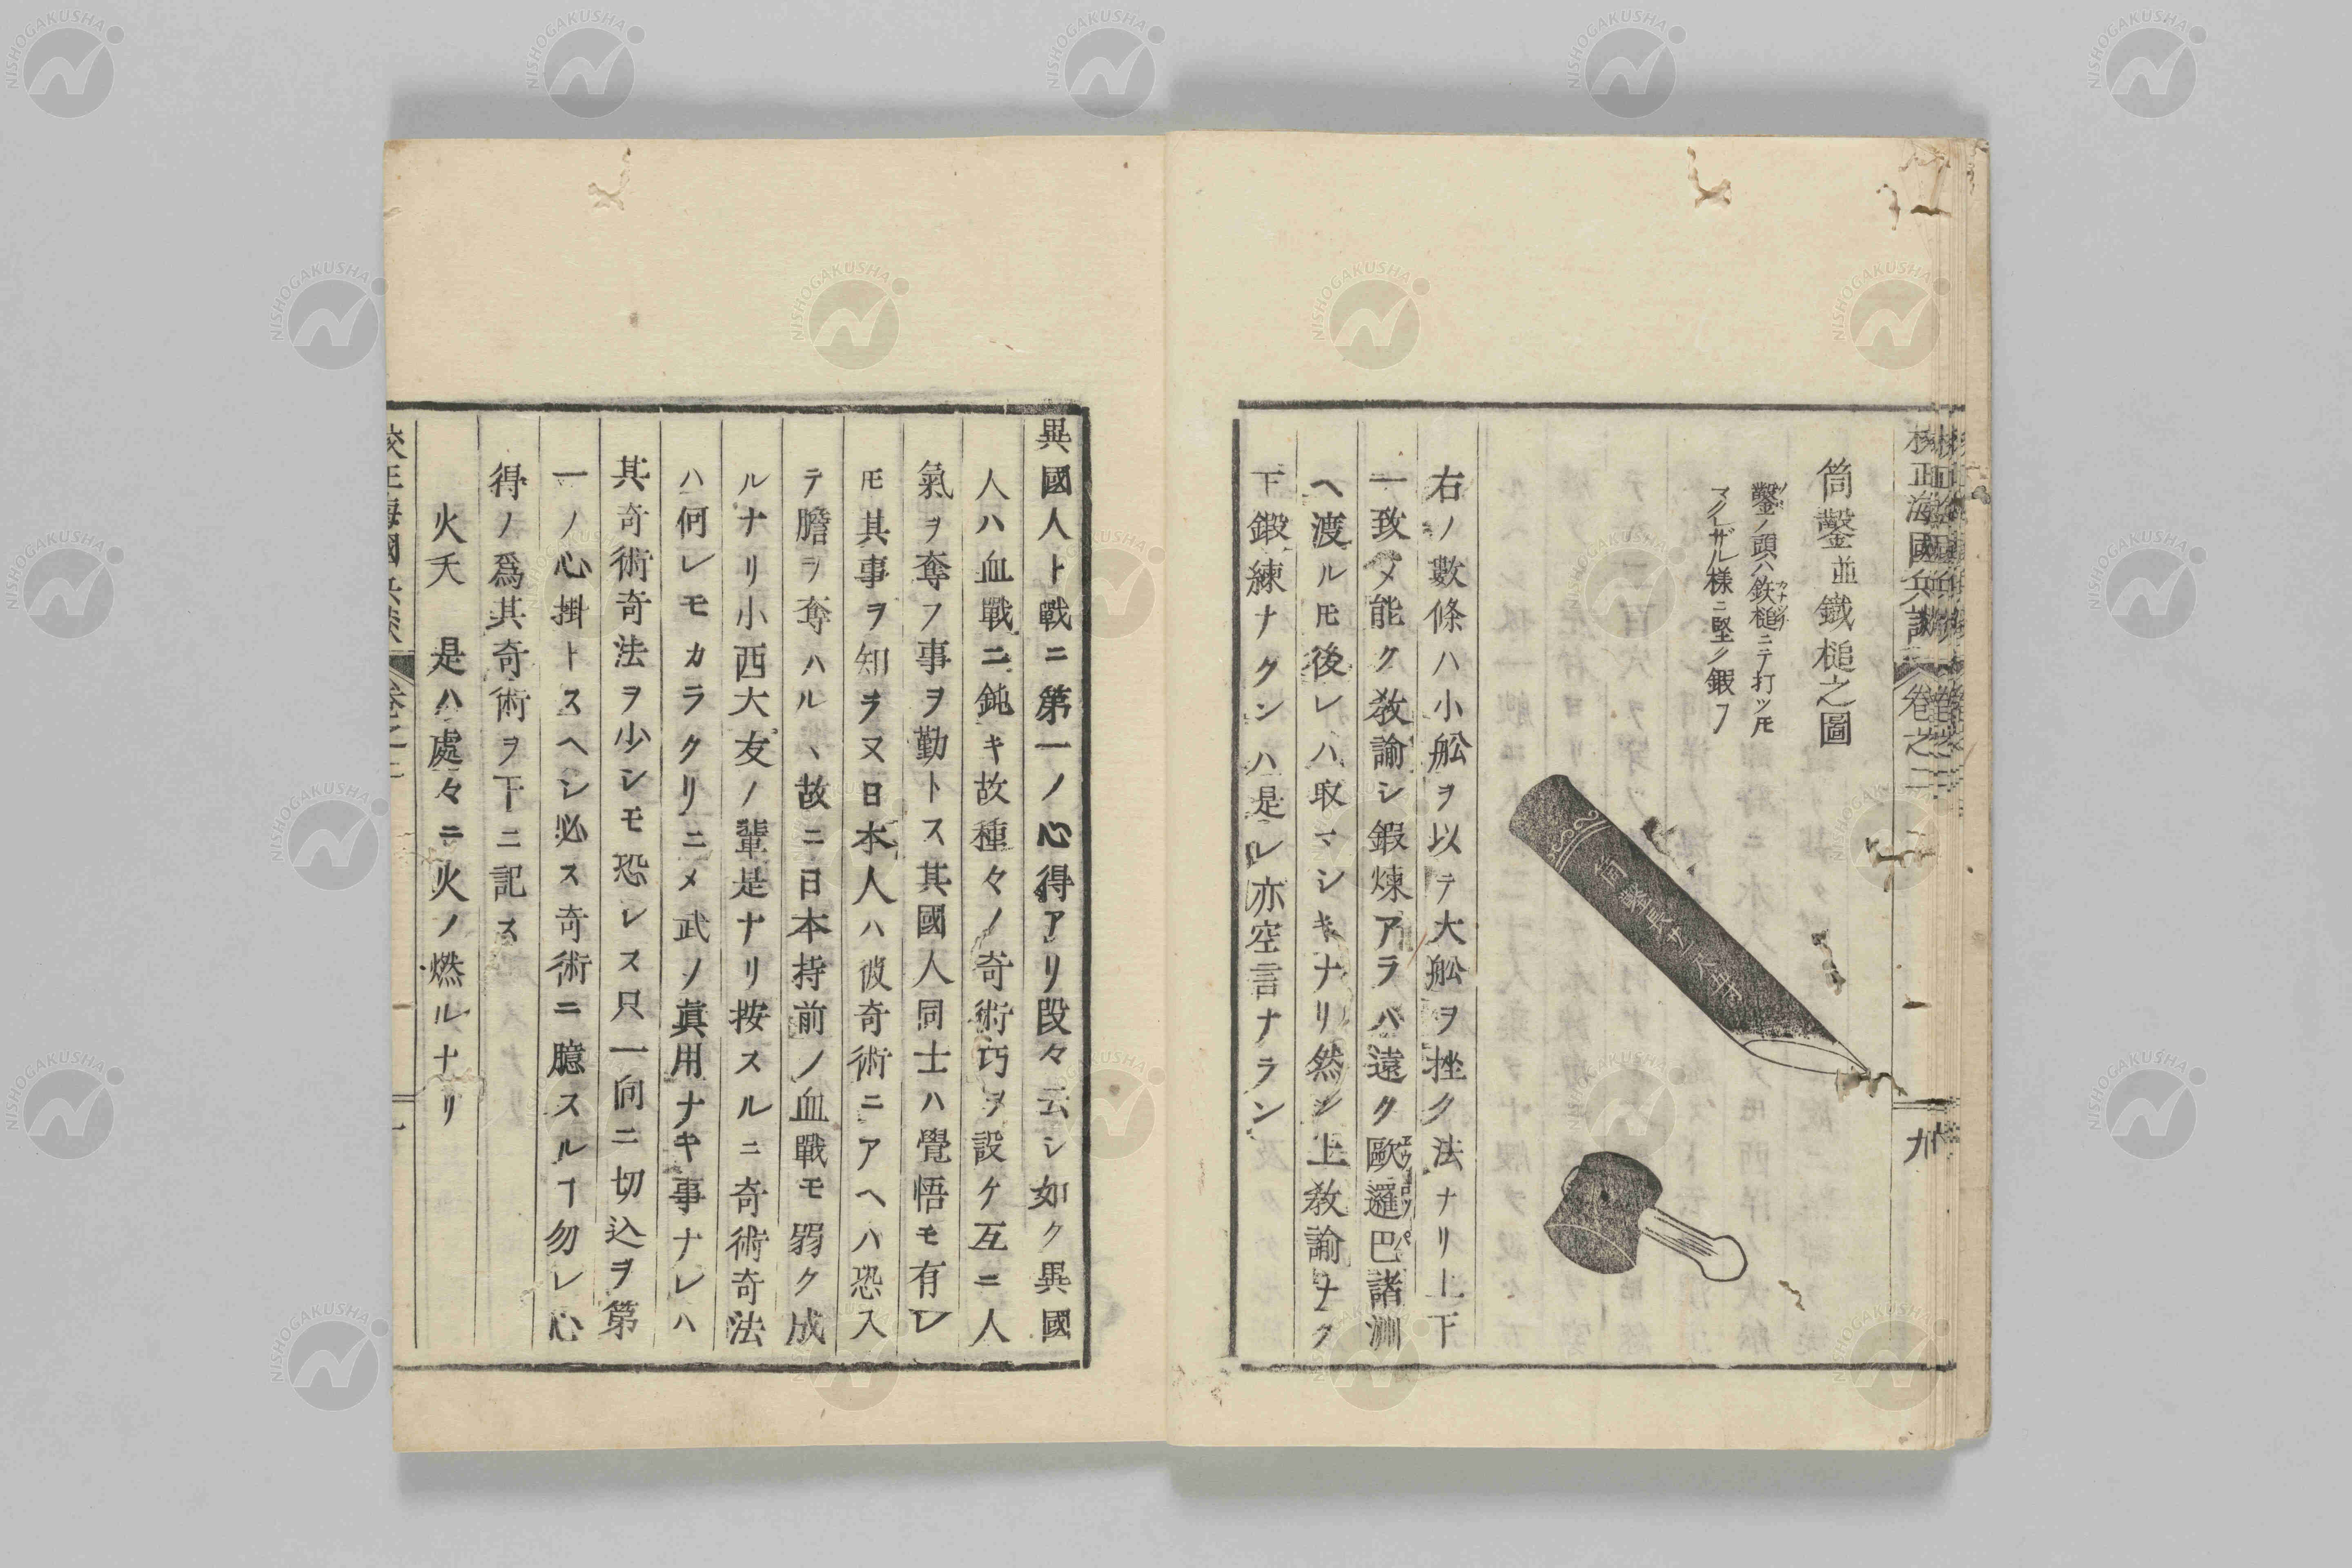 校正海國兵談 卷之二 九
筒鑿並鐵槌之圖
鑿ノ頭ハ鉄槌ニテ打ツ𪜈
マクレザル様ニ堅ク鍜フ
筒鑿長サ一尺全圭寸
右ノ數條ハ小舩ヲ以テ大舩ヲ挫ク法ナリ上下
一致〆能ク敎諭シ鍜煉アラバ遠ク歐邏巴諸洲
ヘ渡ル𪜈後レハ取マシキナリ然シ上敎諭ナク
下鍜練ナクンハ是レ亦空言ナラン
異國人ト戰ニ第一ノ心得アリ段々云シ如ク異國
人ハ血戰ニ鈍キ故種々ノ奇術巧ヲ設ケ互ニ人
氣ヲ奪フ事ヲ勤トス其國人同士ハ覺悟モ有レ
𪜈其事ヲ知ラヌ日本人ハ彼奇術ニアヘハ恐入
テ膽ヲ奪ハルヽ故ニ日本持前ノ血戰モ弱ク成
ルナリ小西大友ノ輩是ナリ按スルニ奇術奇法
ハ何レモカラクリニ〆武ノ眞用ナキ事ナレハ
其奇術奇法ヲ少シモ恐レス只一向ニ切込ヲ第
一ノ心掛トスヘシ必ス奇術ニ臆スルヿ勿レ心
得ノ爲其奇術ヲ下ニ記ス
火夭 是ハ處々ニ火ノ燃ルナリ
校正海國兵談 卷之二